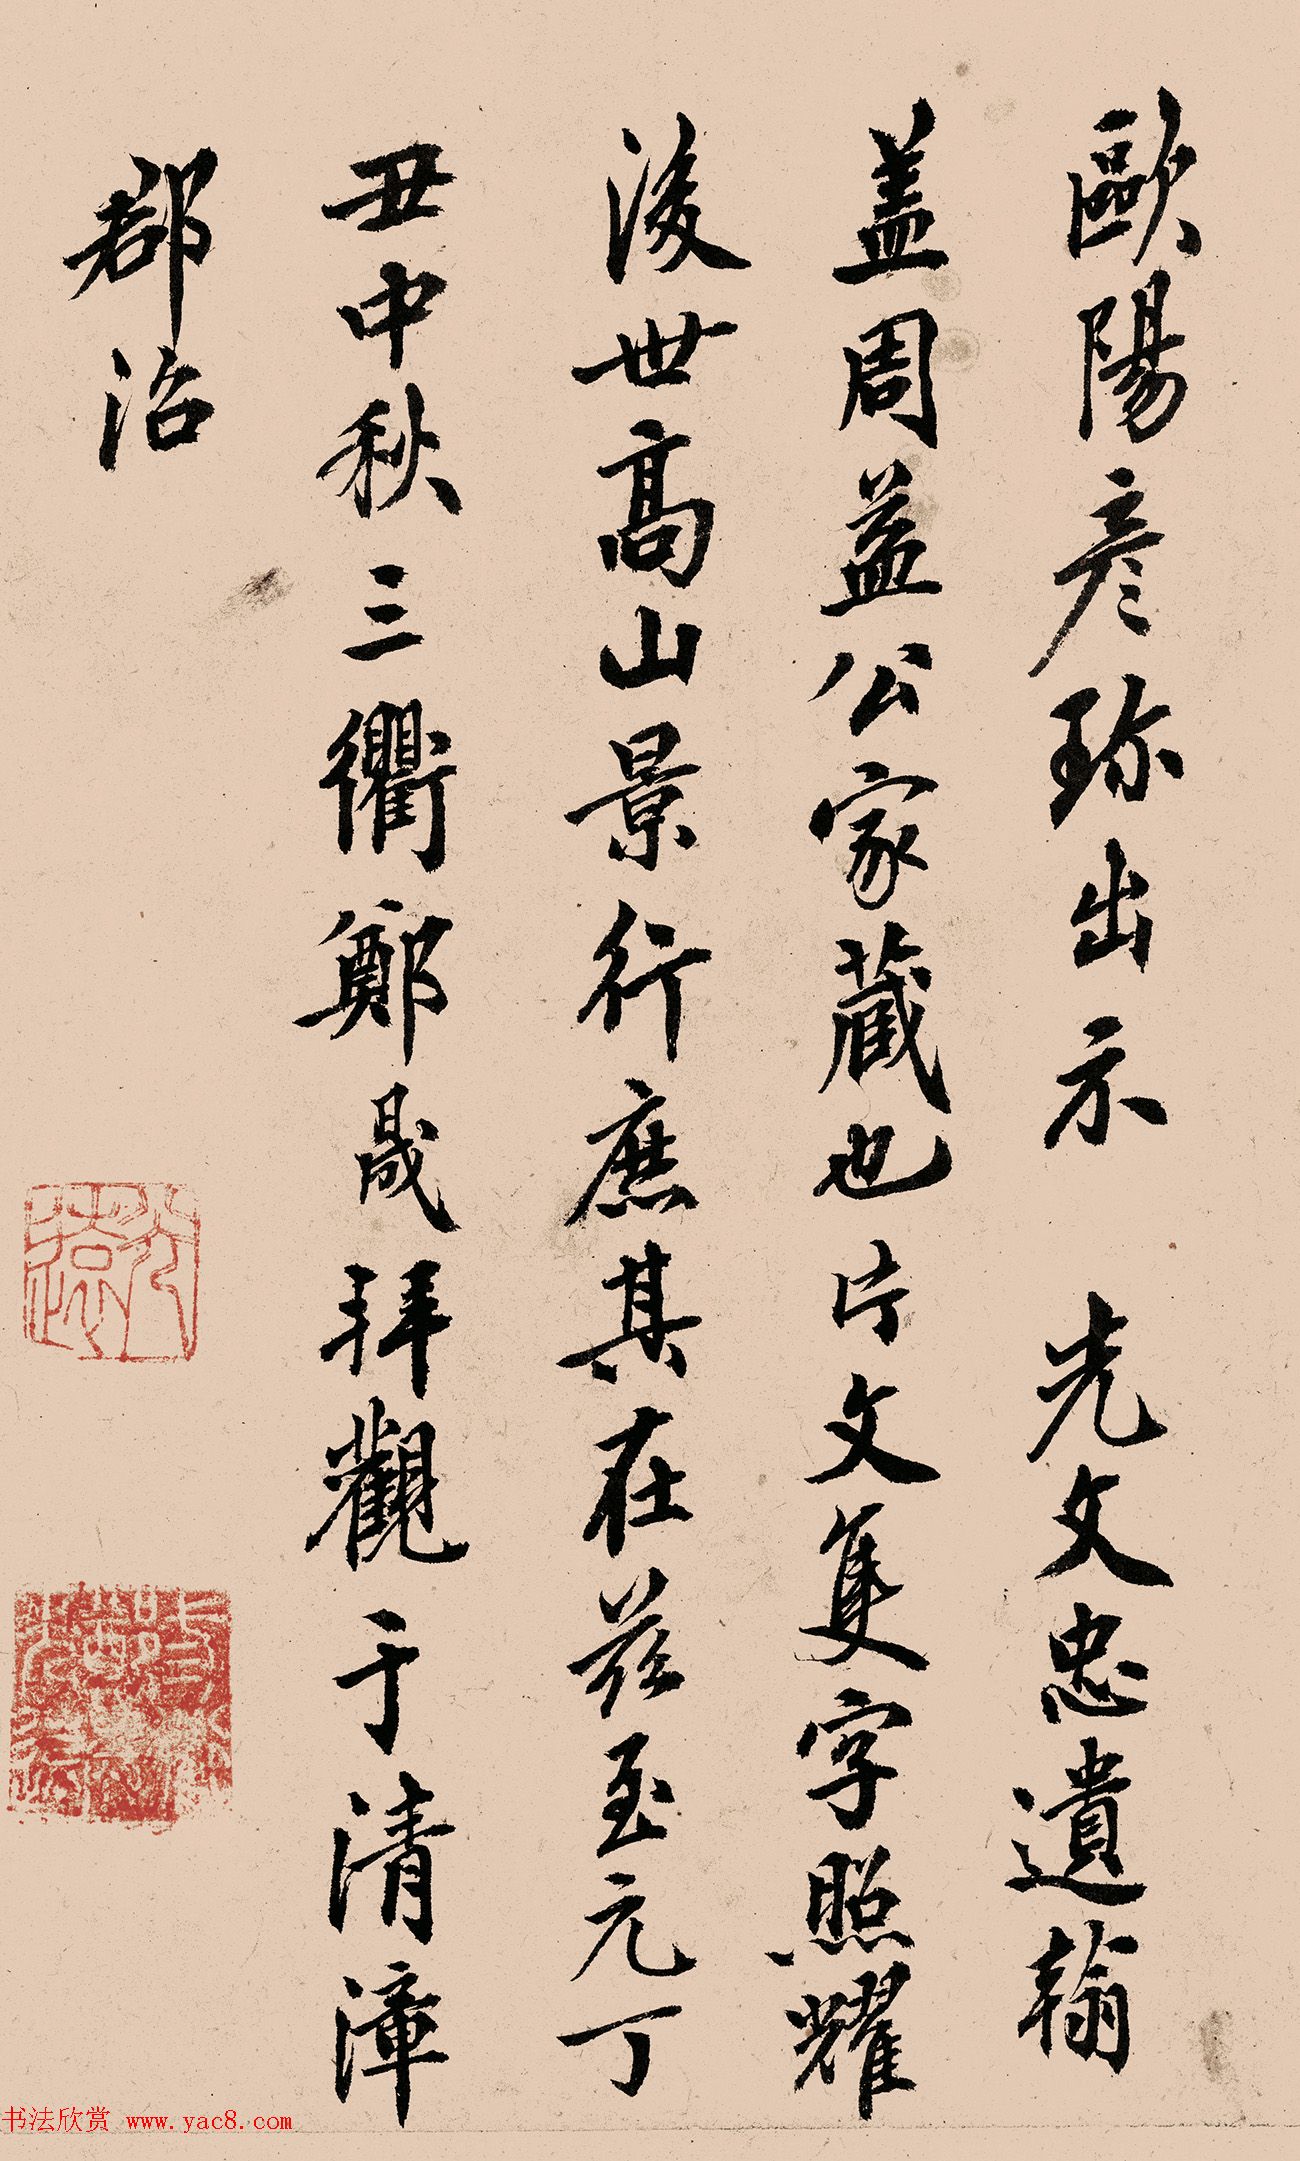 歐陽彥珎出示 光文忠遺翰
盖周益公家藏也片文隻字照耀
後世高山景行庶其在茲至元丁
丑中秋三衢鄭晟拜觀于清漳
郡治
书法欣赏 www.yac8.com